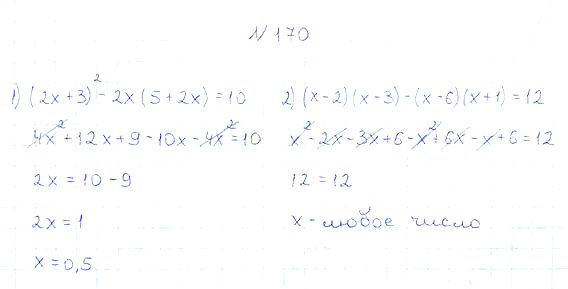 № 170
1) (2x+3)² - 2x(5+2x) = 10
4x² + 12x + 9 - 10x - 4x² = 10
2x = 10 - 9
2x = 1
x = 0,5
2) (x-2)(x-3) - (x-6)(x+1) = 12
x² - 2x - 3x + 6 - x² + 6x - x + 6 = 12
12 = 12
x - любое число